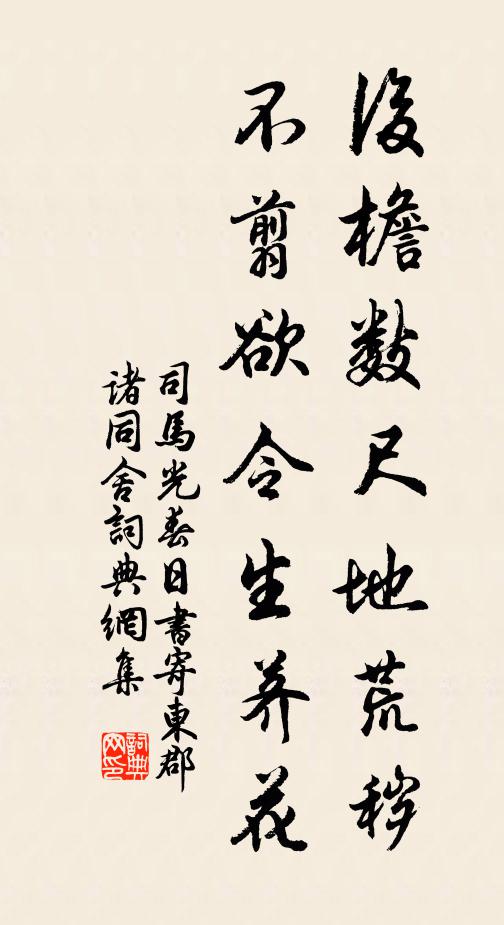 後檐数尺地荒秽
不翦欲令生荞花
司馬光春日書寄東郡
诸同舍詞典網集
詞典网印